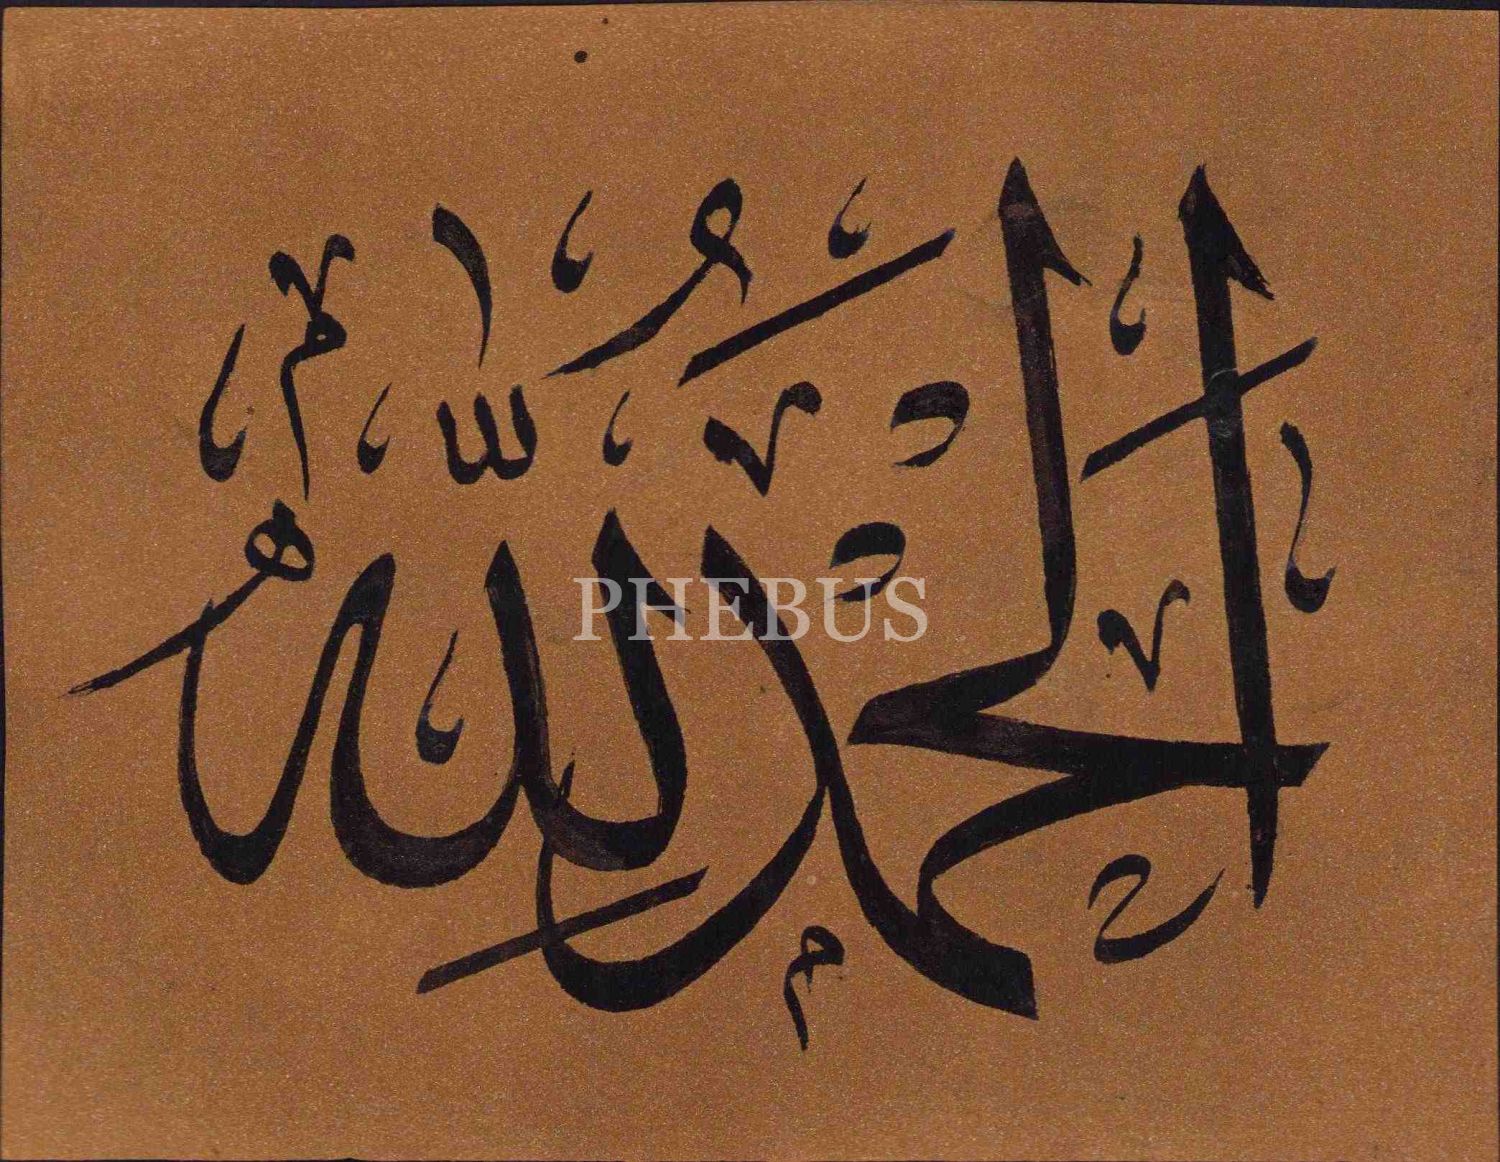 الحمد لله
PHEBUS